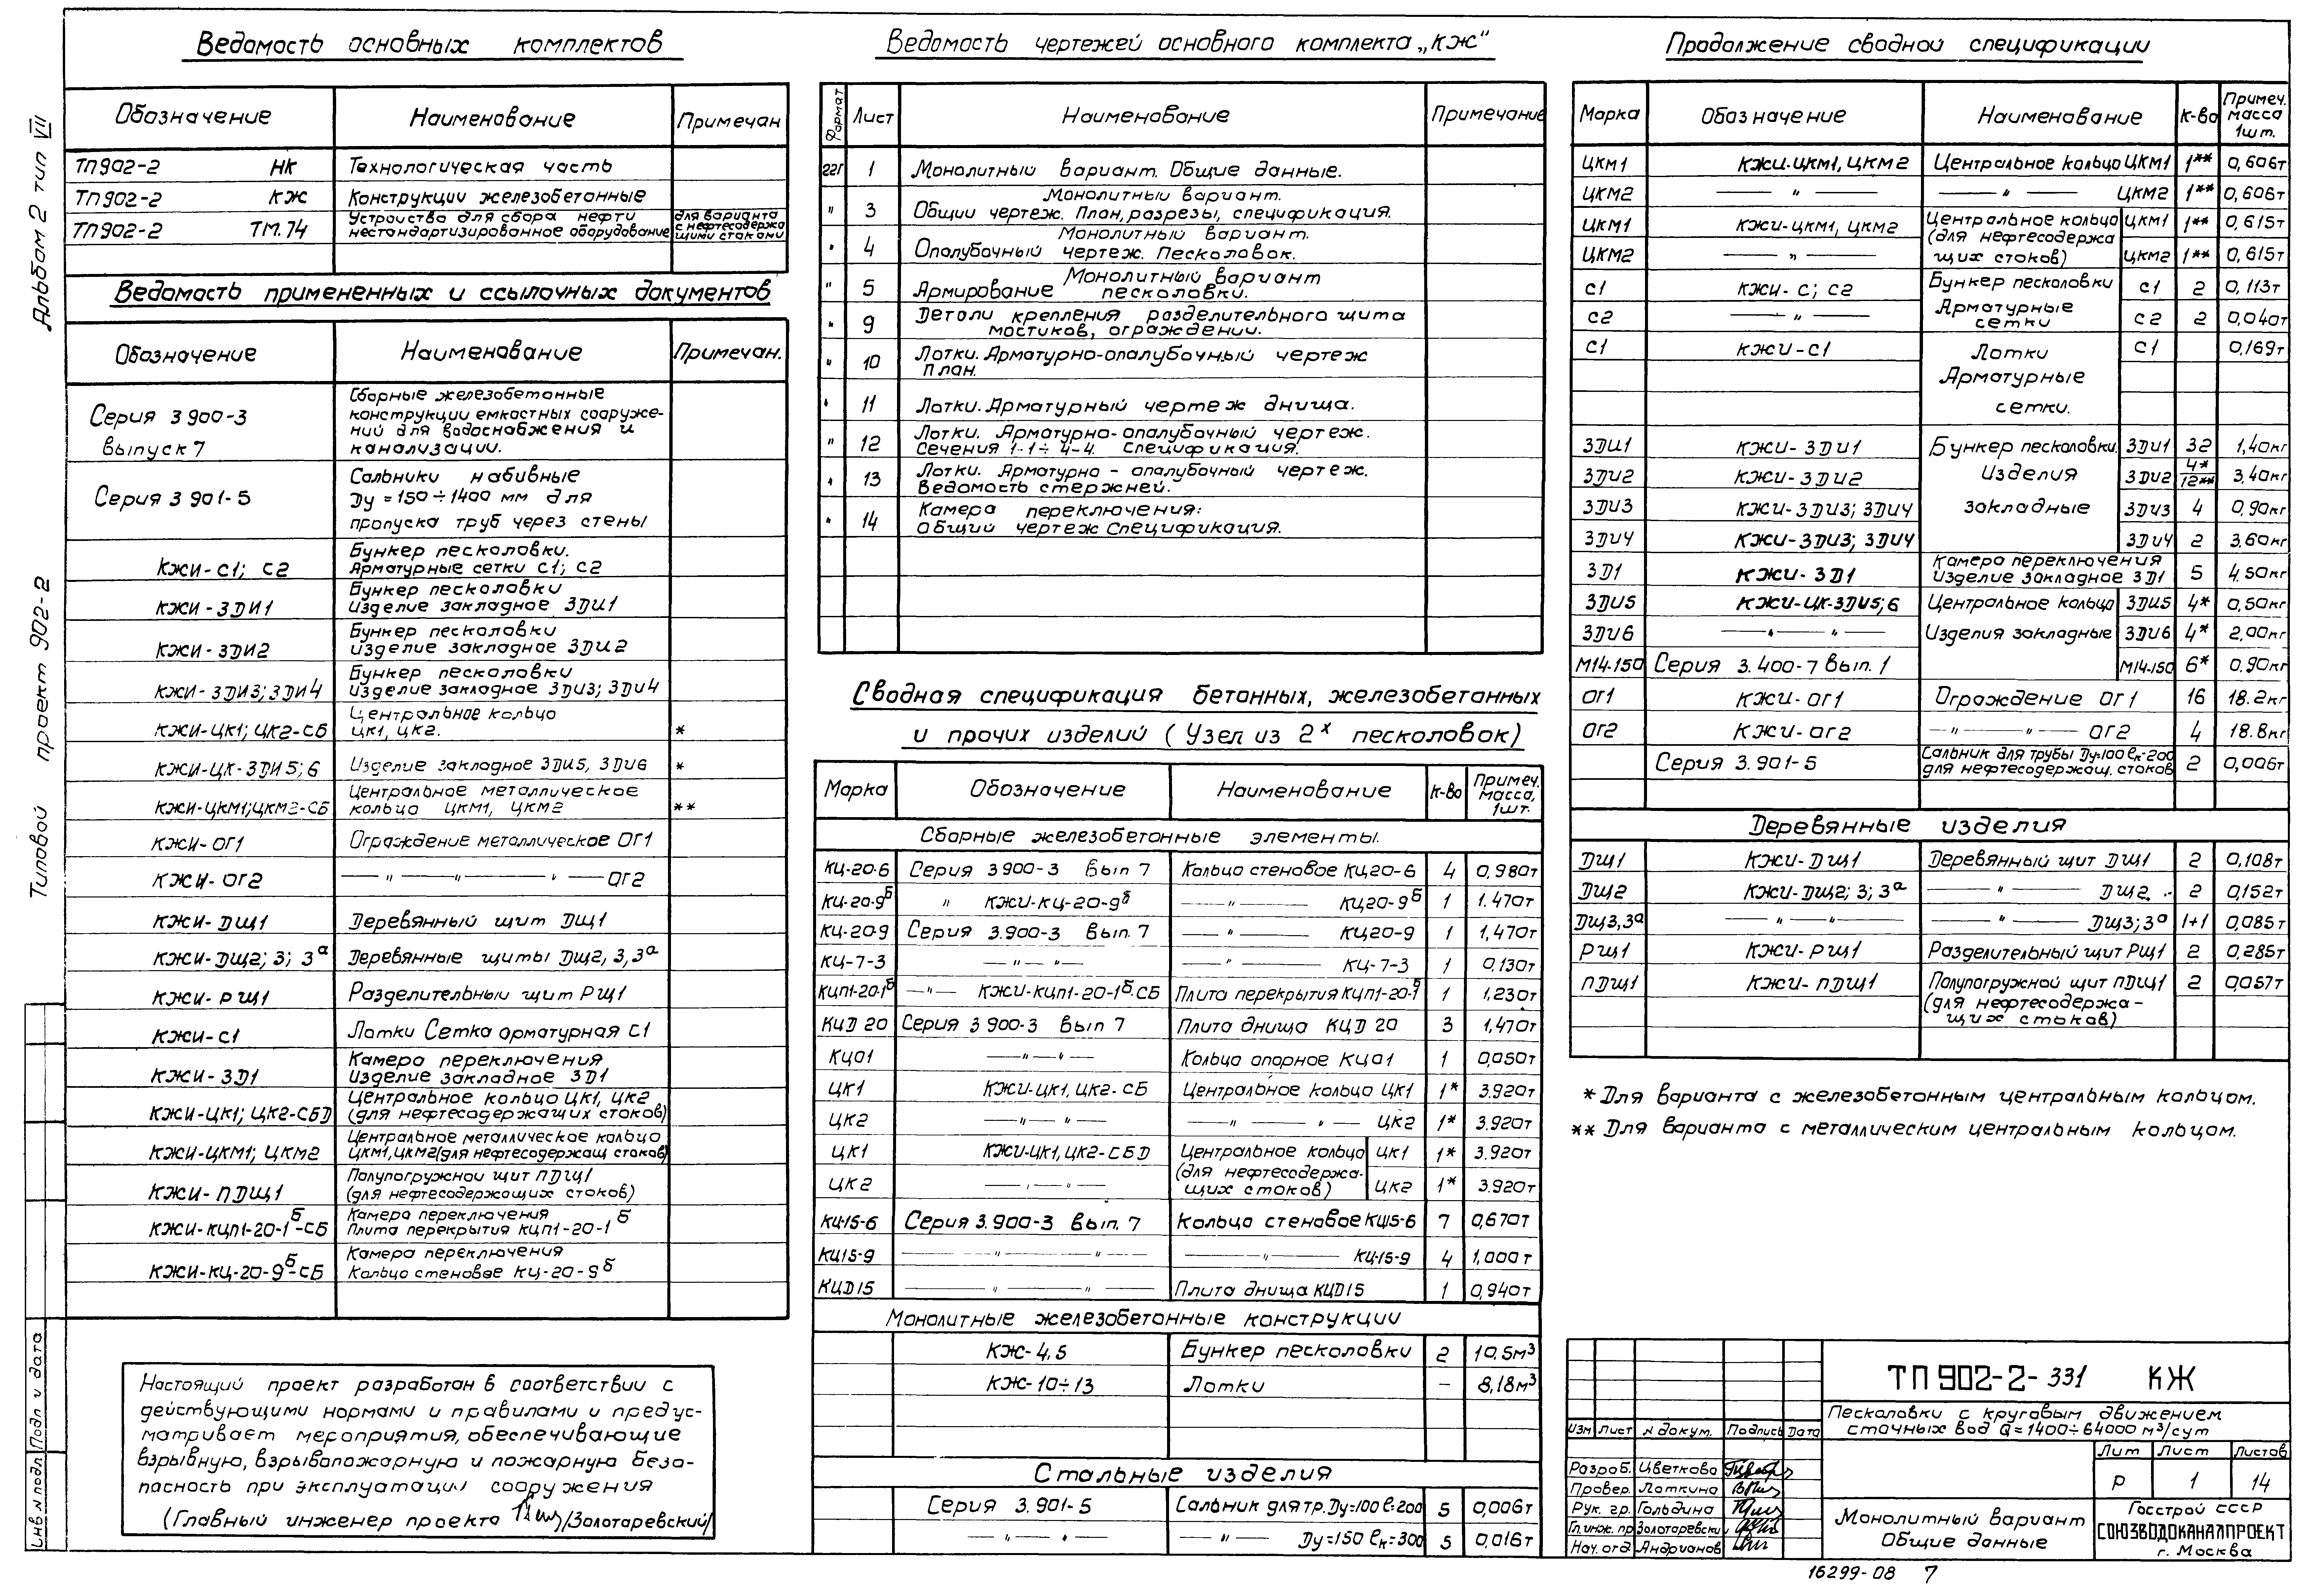 Альбом 2 тип VII
Типовой проект 902-2
Инв N подл Подп и дата
Ведомость основных комплектов
Обозначение Наименование Примечан
ТП902-2 НК Технологическая часть
ТП902-2 КЖ Конструкции железобетонные
ТП902-2 ТМ.74 Устройство для сбора нефти нестандартизированное оборудование для варианта с нефтесодержа щими стоками
Ведомость примененных и ссылочных документов
Обозначение Наименование Примечан.
Серия 3900-3 выпуск 7 Сборные железобетонные
конструкции емкостных сооруже-
ний для водоснабжения и
канализации.
Серия 3 901-5 Сальники набивные
Ду = 150÷1400 мм для
пропуска труб через стены
КЖИ-С1; С2 Бункер песколовки.
Арматурные сетки С1; С2
КЖИ-ЗДИ1 Бункер песколовки
Изделие закладное ЗДИ1
КЖИ-ЗДИ2 Бункер песколовки
Изделие закладное ЗДИ2
КЖИ-ЗДИ3; ЗДИ4 Бункер песколовки
Изделие закладное ЗДИ3; ЗДИ4
КЖИ-ЦК1; ЦК2-СБ Центральное кольцо
ЦК1, ЦК2. *
КЖИ-ЦК-ЗДИ5;6 Изделие закладное ЗДИ5, ЗДИ6 *
КЖИ-ЦКМ1;ЦКМ2-СБ Центральное металлическое
кольцо ЦКМ1, ЦКМ2 **
КЖИ-ОГ1 Ограждение металлическое ОГ1
КЖИ-ОГ2 —〃—〃—〃— ОГ2
КЖИ-ДЩ1 Деревянный щит ДЩ1
КЖИ-ДЩ2; 3; 3а Деревянные щиты ДЩ2, 3, 3а
КЖИ-РЩ1 Разделительный щит РЩ1
КЖИ-С1 Лотки Сетка арматурная С1
КЖИ-ЗД1 Камера переключения
Изделие закладное ЗД1
КЖИ-ЦК1; ЦК2-СБД Центральное кольцо ЦК1, ЦК2
(для нефтесодержащих стоков)
КЖИ-ЦКМ1; ЦКМ2 Центральное металлическое кольцо
ЦКМ1,ЦКМ2(для нефтесодержащ стоков)
КЖИ-ПДЩ1 Полупогружной щит ПДЩ1
(для нефтесодержащих стоков)
КЖИ-КЦП1-20-1б-СБ Камера переключения
Плита перекрытия КЦП1-20-1б
КЖИ-КЦ-20-9б-СБ Камера переключения
Кольцо стеновое КЦ-20-9б
Настоящий проект разработан в соответствии с
действующими нормами и правилами и предус-
матривает мероприятия, обеспечивающие
взрывную, взрывопожарную и пожарную безо-
пасность при эксплуатации сооружения
(Главный инженер проекта /Золотаревский/
Ведомость чертежей основного комплекта „КЖ"
Формат Лист Наименование Примечание
22Г 1 Монолитный вариант. Общие данные.
〃 3 Монолитный вариант.
Общий чертеж. План, разрезы, спецификация.
〃 4 Монолитный вариант.
Опалубочный чертеж. Песколовок.
〃 5 Монолитный вариант
Армирование песколовки.
〃 9 Детали крепления разделительного щита
мостиков, ограждений.
〃 10 Лотки. Арматурно-опалубочный чертеж
План.
〃 11 Лотки. Арматурный чертеж днища.
〃 12 Лотки. Арматурно-опалубочный чертеж.
Сечения 1-1÷4-4. Спецификация.
〃 13 Лотки. Арматурно-опалубочный чертеж.
Ведомость стержней.
〃 14 Камера переключения:
Общий чертеж Спецификация.
Сводная спецификация бетонных, железобетонных
и прочих изделий (Узел из 2х песколовок)
Марка Обозначение Наименование К-во Примеч. масса, 1шт.
Сборные железобетонные элементы.
КЦ-20-6 Серия 3900-3 Вып 7 Кольцо стеновое КЦ20-6 4 0,980т
КЦ-20-9б 〃 КЖИ-КЦ-20-9б —〃— КЦ20-9б 1 1.470т
КЦ-20-9 Серия 3.900-3 Вып. 7 —〃— КЦ20-9 1 1,470т
КЦ-7-3 —〃—〃— —〃— КЦ-7-3 1 0.130т
КЦП1-20-1б —〃— КЖИ-КЦП1-20-1б-СБ Плита перекрытия КЦП1-20-1б 1 1,230т
КЦД 20 Серия 3900-3 Вып 7 Плита днища КЦД 20 3 1,470т
КЦО1 —〃—〃— Кольцо опорное КЦО1 1 0,050т
ЦК1 КЖИ-ЦК1, ЦК2-СБ Центральное кольцо ЦК1 1* 3.920т
ЦК2 —〃—〃— —〃—〃— ЦК2 1* 3.920т
ЦК1 КЖИ-ЦК1, ЦК2-СБД Центральное кольцо ЦК1 1* 3.920т
(для нефтесодержа-
ЦК2 —〃—〃— щих стоков) ЦК2 1* 3.920т
КЦ-15-6 Серия 3.900-3 Вып. 7 Кольцо стеновое КЦ15-6 7 0,670т
КЦ15-9 —〃— —〃— КЦ-15-9 4 1,000т
КЦД15 —〃—〃— Плита днища КЦД15 1 0,940т
Монолитные железобетонные конструкции
КЖ-4,5 Бункер песколовки 2 10,5м3
КЖ-10÷13 Лотки — 8,18м3
Стальные изделия
Серия 3.901-5 Сальник для тр. Ду=100 ℓ=200 5 0,006т
—〃—〃— —〃— Ду=150 ℓк=300 5 0,016т
Продолжение сводной спецификации
Марка Обозначение Наименование К-во Примеч. масса 1шт.
ЦКМ1 КЖИ-ЦКМ1, ЦКМ2 Центральное кольцо ЦКМ1 1** 0,606т
ЦКМ2 —〃— —〃— ЦКМ2 1** 0,606т
ЦКМ1 КЖИ-ЦКМ1, ЦКМ2 Центральное кольцо ЦКМ1 1** 0,615т
(для нефтесодержа
ЦКМ2 —〃— щих стоков) ЦКМ2 1** 0,615т
С1 КЖИ-С; С2 Бункер песколовки С1 2 0,113т
С2 —〃— Арматурные сетки С2 2 0,040т
С1 КЖИ-С1 Лотки С1 0,169т
Арматурные
сетки.
ЗДИ1 КЖИ-ЗДИ1 Бункер песколовки. ЗДИ1 32 1,40кг
ЗДИ2 КЖИ-ЗДИ2 Изделия ЗДИ2 4* 12** 3,40кг
ЗДИ3 КЖИ-ЗДИ3; ЗДИ4 закладные ЗДИ3 4 0,90кг
ЗДИ4 КЖИ-ЗДИ3; ЗДИ4 ЗДИ4 2 3.60кг
ЗД1 КЖИ-ЗД1 Камера переключения
Изделие закладное ЗД1 5 4.50кг
ЗДИ5 КЖИ-ЦК-ЗДИ5;6 Центральное кольцо ЗДИ5 4* 0,50кг
ЗДИ6 —〃—〃— Изделия закладные ЗДИ6 4* 2,00кг
М14-150 Серия 3.400-7 Вып. 1 М14-150 6* 0.90кг
ОГ1 КЖИ-ОГ1 Ограждение ОГ1 16 18.2кг
ОГ2 КЖИ-ОГ2 —〃—〃— ОГ2 4 18.8кг
Серия 3.901-5 Сальник для трубы Ду=100 ℓк=200
для нефтесодержащ. стоков 2 0,006т
Деревянные изделия
ДЩ1 КЖИ-ДЩ1 Деревянный щит ДЩ1 2 0,108т
ДЩ2 КЖИ-ДЩ2; 3; 3а —〃— ДЩ2. 2 0,152т
ДЩ3,3а —〃—〃— —〃— ДЩ3; 3а 1+1 0,085т
РЩ1 КЖИ-РЩ1 Разделительный щит РЩ1 2 0,285т
ПДЩ1 КЖИ-ПДЩ1 Полупогружной щит ПДЩ1 2 0,057т
(для нефтесодержа-
щих стоков)
* Для варианта с железобетонным центральным кольцом.
** Для варианта с металлическим центральным кольцом.
ТП 902-2-331 КЖ
Песколовки с круговым движением
сточных вод Q=1400÷64000 м3/сут
Изм Лист N докум. Подпись Дата
Лит Лист Листов
Р 1 14
Разраб. Цветкова
Провер. Лоткина
Рук. гр. Гольдина
Гл.инж. пр Золотаревский
Нач. отд Андрианов
Монолитный вариант
Общие данные
Госстрой СССР
СОЮЗВОДОКАНАЛПРОЕКТ
г. Москва
16299-08 7